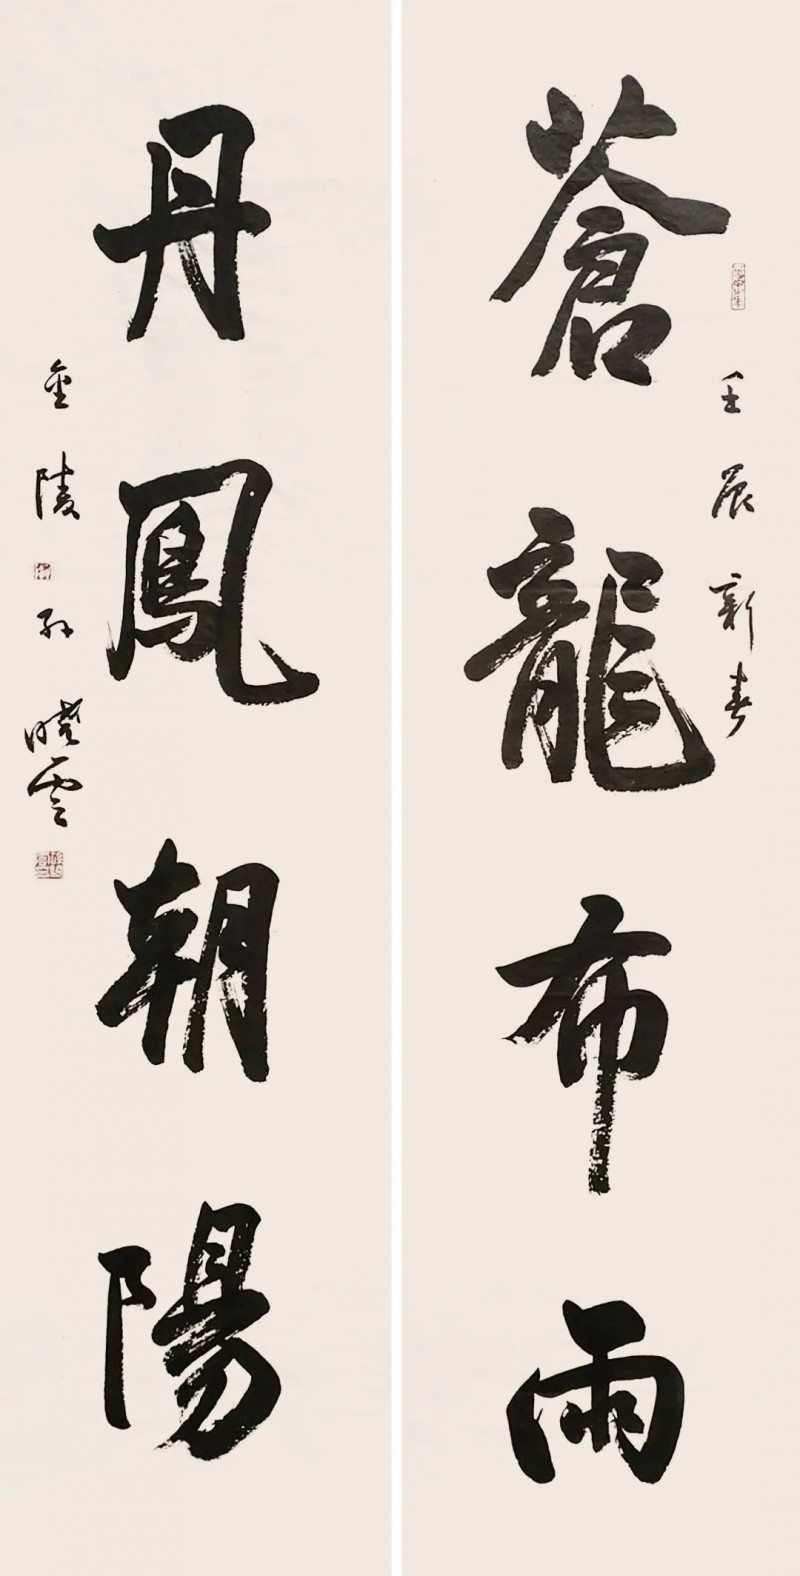 蒼龍布雨
壬辰新春
丹鳳朝陽
金陵孙曉雲